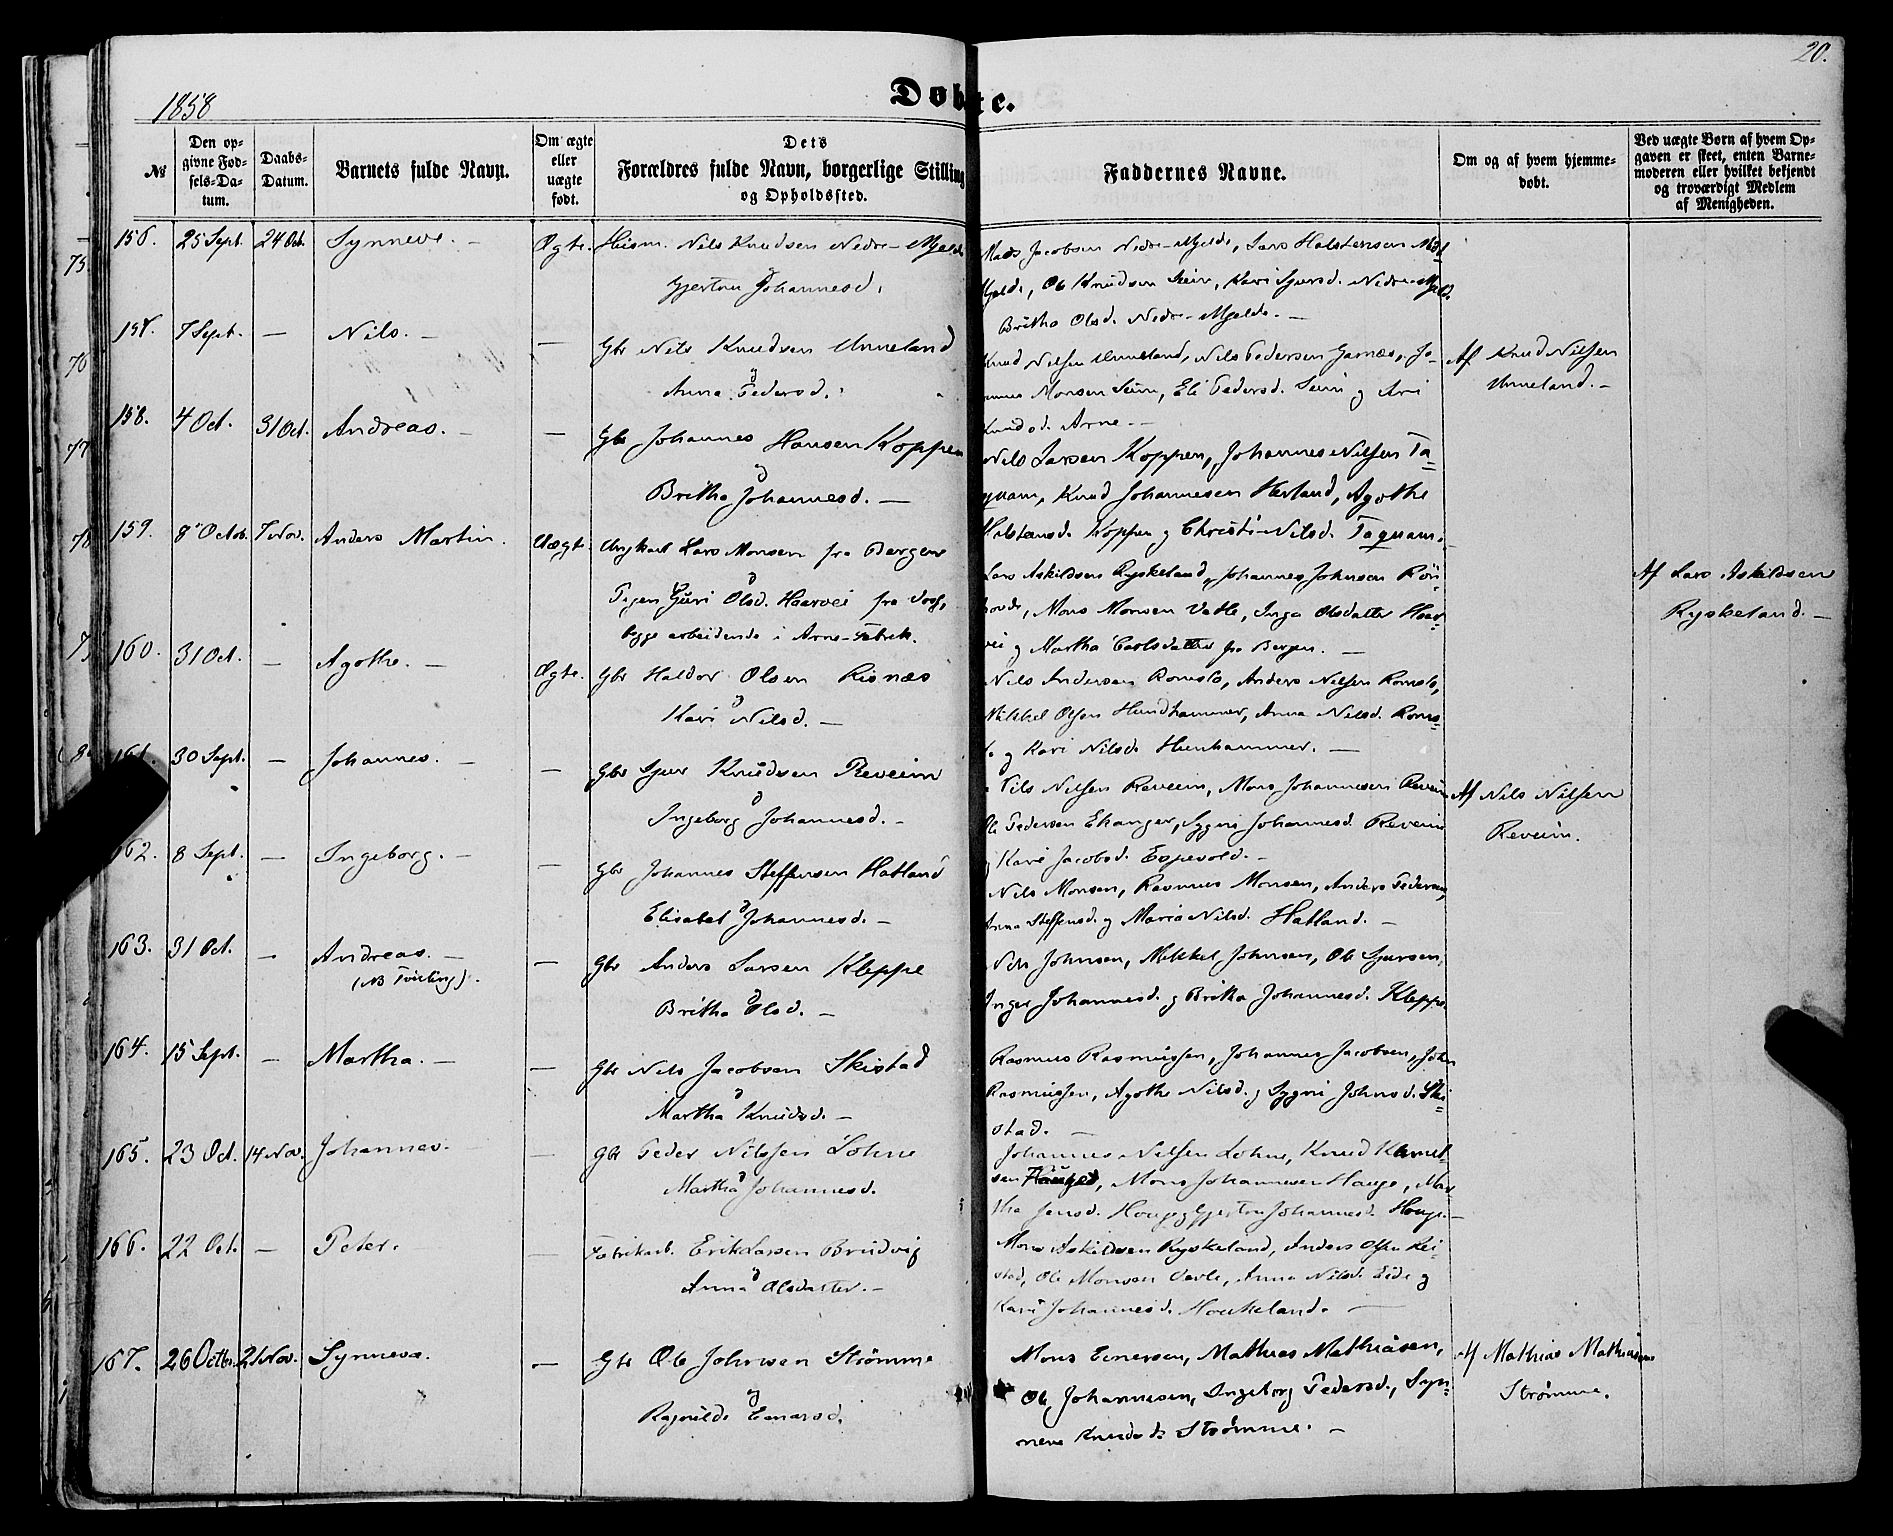 20.
1858
Døbte.
No
Den opgivne Fødsels-Datum.
Daabs-Datum.
Barnets fulde Navn.
Om ægte eller uægte født.
Dets Forældres fulde Navn, borgerlige Stilling og Opholdssted.
Faddernes Navne.
Om og af hvem hjemmedøbt.
Ved uægte Børn af hvem Opgaven er skeet, enten Barnemoderen eller hvilket bekjendt og troværdigt Medlem af Menigheden.
156. 25 Sept. 24 Oct. Synneve. — Ægte. Huusm. Nils Knudsen Nedre-Mjelde
Gjertru Johannesd.
Mads Jacobsen Nedre-Mjelde, Lars Halstensen
Mjelde, Ole Knudsen Seim, Kari Sjursd. Nedre-Mjelde
Britha Olsd. Nedre-Mjelde. —
157. 7 Sept. — Nils. — — Gbr Nils Knudsen Unneland
& Anna Pedersd.
Knud Nilsen Unneland, Nils Pedersen Garnæs, Jo-
annes Monsen Seim, Eli Pedersd. Seim og Ari
Knudsd. Arne —
Af Knud Nilsen
Unneland. —
158. 4 Oct. 31 Oct. Andreas. — — Gbr Johannes Hansen Koppen
& Britha Johannesd. —
Nils Larsen Koppen, Johannes Nilsen Ta=
quam, Knud Johannesen Herland, Agothe
Halstensd. Koppen og Christi Nilsd. Taquam.
159. 8 Octob. 7 Nov. Anders Martin. Uægte. Ungkarl Lars Monsen fra Bergen
& Pigen Guri Olsd. Haarvei fra Voss,
begge arbeidende i Arne-Fabrik.
Lars Askildsen Ryskeland, Johannes Johnsen Rön
hovde, Mons Monsen Vatle, Inga Olsdatter Haar=
vei og Martha Carlsdatter fra Bergen. —
Af Lars Askildsen
Ryskeland. —
160. 31 Oct. — Agothe. — Ægte. Gbr Haldor Olsen Risnæs
& Kari Nilsd. —
Nils Andersen Romslo, Anders Nilsen Romslo,
Mikkel Olsen Hundhammer, Anna Nilsd. Roms=
lo og Kari Nilsd. Hunhammer. —
161. 30 Sept. — Johannes. — — Gbr Sjur Knudsen Reveim
& Ingeborg Johannesd. —
Nils Nilsen Reveim, Mons Johannesen Reveim
Ole Pedersen Ekanger, Sygni Johannesd. Reveim
og Kari Jacobsd. Espevold. —
Af Nils Nilsen
Reveim.
162. 8 Sept. — Ingeborg. — — Gbr Johannes Steffensen Hatland
& Elisabet Johannesd. —
Nils Monsen, Rasmus Monsen, Anders Pedersen,
Anna Steffensd. og Maria Nilsd. Hatland. —
163. 31 Oct. — Andreas. — — Gbr Anders Larsen Kleppe
(NB Tvilling).
& Britha Olsd. —
Nils Johnsen, Mikkel Johnsen, Ole Sjursen,
Inger Johannesd. og Britha Johannesd. Kleppe
164. 15 Sept. — Martha. — — Gbr Nils Jacobsen Skistad
& Martha Knudsd. —
Rasmus Rasmussen, Johannes Jacobsen, John
Rasmussen, Agothe Nilsd. og Sygni Johnsd. Ski=
stad. —
165. 23 Oct. 14 Nov. Johannes. — Gbr Peder Nilssen Lohne
& Martha Johannesd.
Johannes Nilsen Lohne, Knud
sen Hauge, Mons Johannesen Hauge, Mar
tha Jensd. Houge og Gjertru Johannesd. Houge. —
166. 22 Oct. — Peter. — Fabrikarb. Erik Larsen Brudvig
& Anna Olsdatter. —
Mons Askildsen Ryskeland, Anders Olsen Rei=
stad, Ole Monsen Vatle, Anna Nilsd. Eide og
Kari Johannesd. Houkeland. —
167. 26 Octbr. 21 Nov. Synneva. — Gbr Ole Johnsen Strømme
& Ragnilde Einarsd.
Mons Einersen, Mathias Mathiasen,
Ole Johannesen, Ingeborg Pedersd., Syn=
neve Knudsd. Strømme. —
Af Mathias Mathiasen
Strømme.